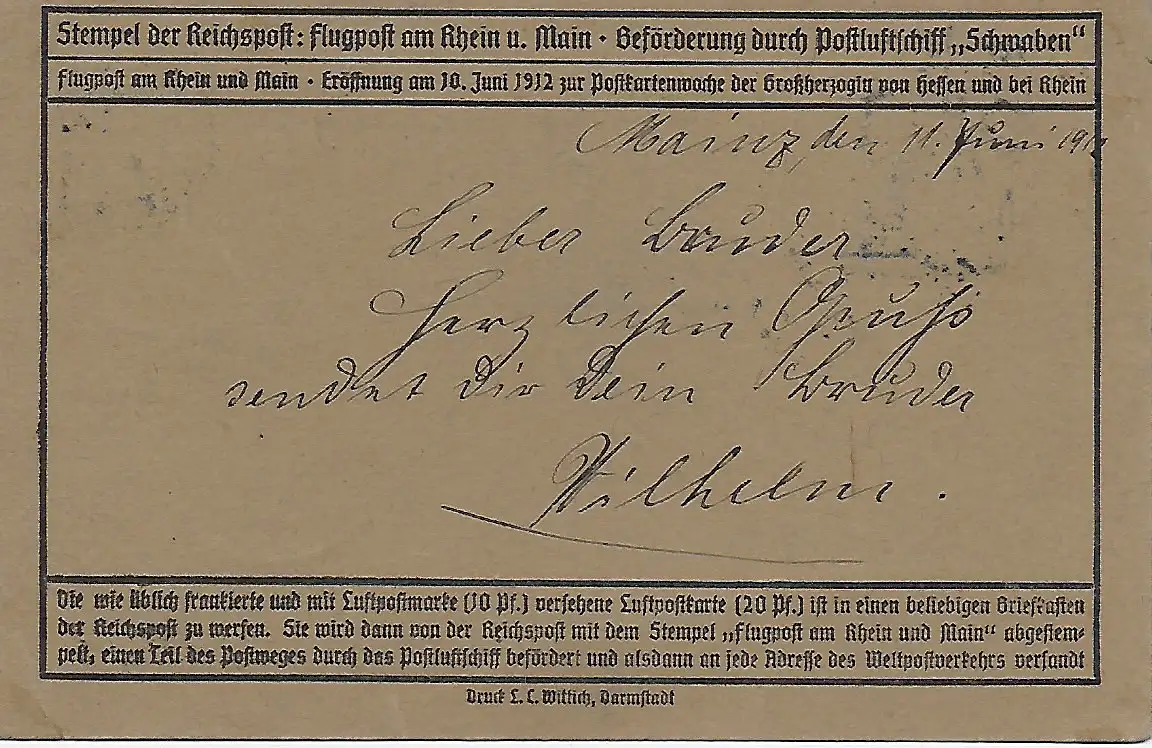 Stempel der Reichspost: Flugpost am Rhein u. Main · Beförderung durch Postluftschiff „Schwaben“
Flugpost am Rhein und Main · Eröffnung am 10. Juni 1912 zur Postkartenwoche der Großherzogin von Hessen und bei Rhein
Mainz, den 11. Juni 1912
Lieber Bruder
Herzlichen Gruß
sendet Dir Dein Bruder
Wilhelm.
Die wie üblich frankierte und mit Luftpostmarke (10 Pf.) versehene Luftpostkarte (20 Pf.) ist in einen beliebigen Briefkasten
der Reichspost zu werfen. Sie wird dann von der Reichspost mit dem Stempel „Flugpost am Rhein und Main“ abgestem-
pelt, einen Teil des Postweges durch das Postluftschiff befördert und alsdann an jede Adresse des Weltpostverkehrs versandt
Druck L. C. Wittich, Darmstadt